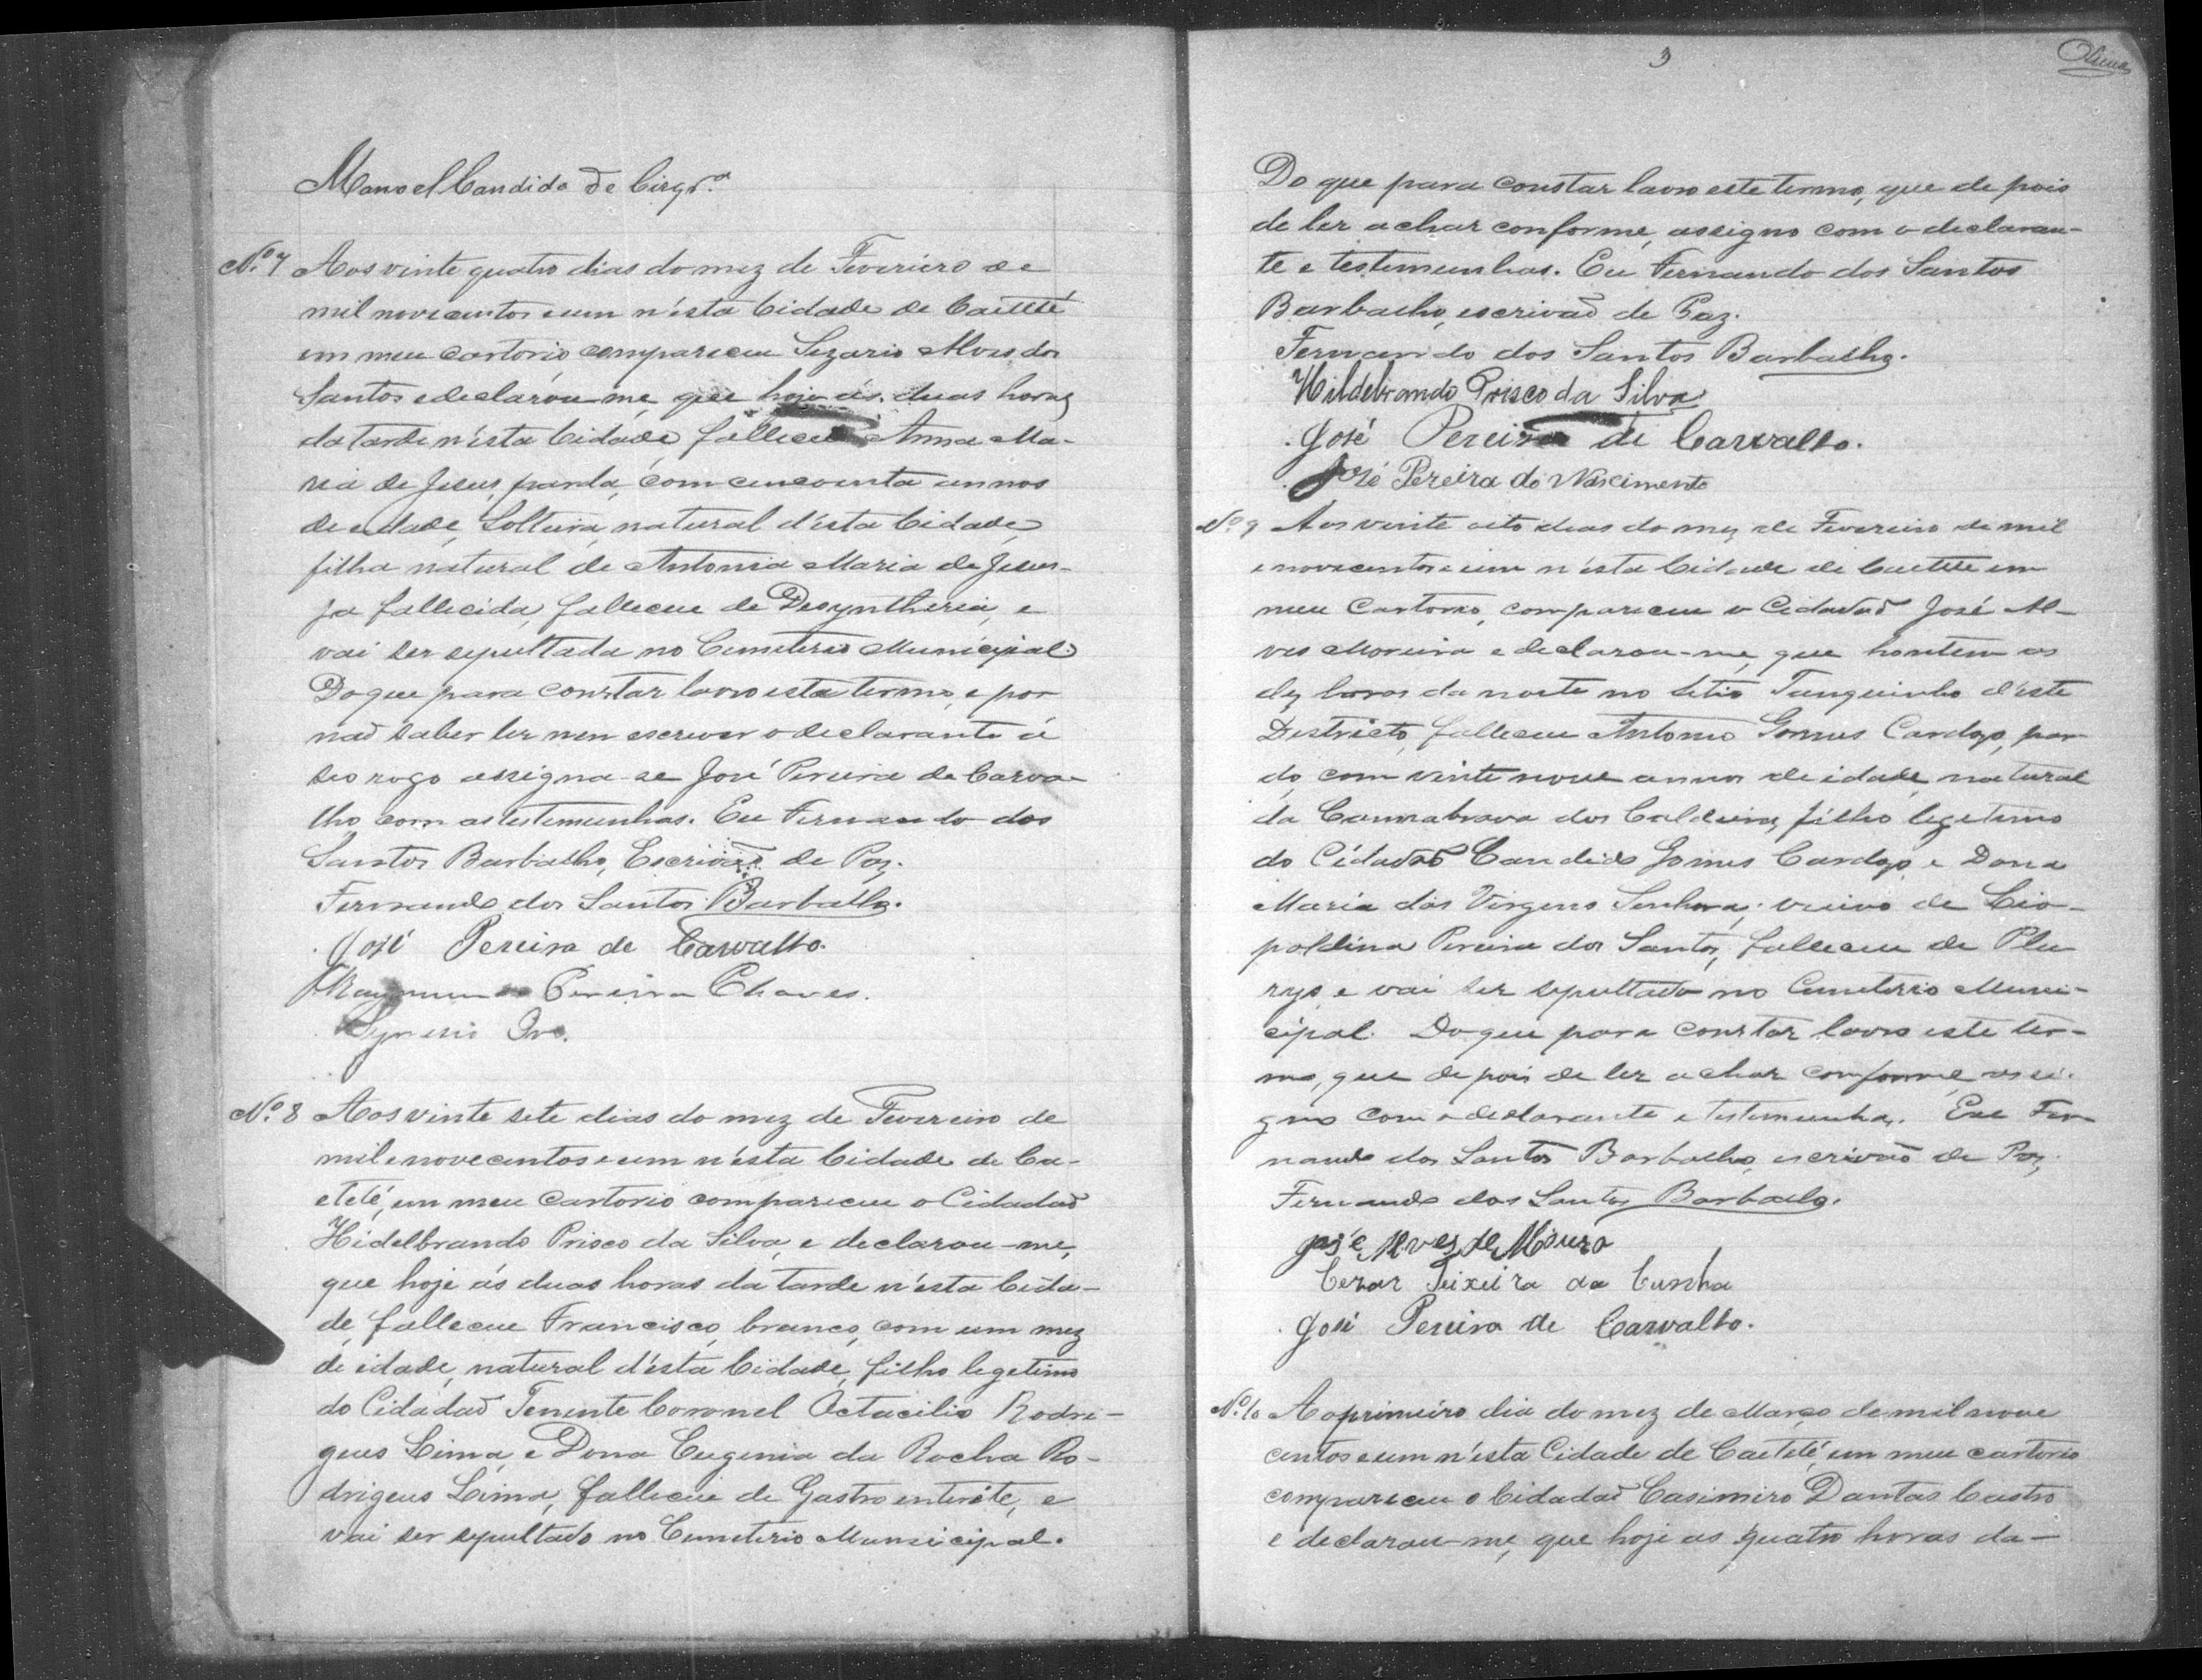 Manoel Candido de Cirqrª
Nº 7 Aos vinte quatro dias do mez de Feveriero de
mil novecentos e um n'ésta Cidade de Caetité
em meu cartorio compareceu Sezario Alves dos
Santos e declarou-me que hoje ás duas horas
da tarde n'ésta Cidade, falleceu Anna Ma-
ria de Jesus, parda, com cincoenta annos
de edade, Solteira, natural d'ésta Cidade,
filha natural de Antonia Maria de Jesus-
ja fallecida, falleceu de Desyntheria, e
vai ser sepultada no Cemiterio Municipal.
Do que para constar lavro este termo, e por
naõ saber ler nem escrever o declarante á
seo rogo assigna-se José Pereira de Carva-
lho com as testemunhas. Eu Fernando dos
Santos Barbalho, Escrivaõ de Paz.
Fernando dos Santos Barbalho.
José Pereira de Carvalho.
Raymundo Pereira Chaves.
Synesio
Nº 8 Aos vinte sete dias do mez de Fevereiro de
mil e novecentos e um n'ésta Cidade de Ca-
etité, em meu cartorio compareceu o Cidadaõ
Hidelbrando Prisco da Silva, e declarou-me,
que hoje ás duas horas da tarde n'ésta Cida-
de, falleceu Francisco, branco, com um mez
de idade, natural d'ésta Cidade, filho legetimo
do Cidadaõ Tenente Coronel Octacilio Rodri-
gues Lima, e Dona Eugenia da Rocha Ro-
drigues Lima, falleceu de Gastro enterite, e
vai ser sepultado no Cemeterio Municipal.
3
Do que para constar lavro este termo, que de pois
de ler achar conforme, assigno com o declaran-
te e testemunhas. Eu Fernando dos Santos
Barbalho, escrivaõ de Paz.
Fernando dos Santos Barbalho.
Hildebrando Prisco da Silva
José Pereira de Carvalho.
José Pereira do Nascimento
Nº 9 Aos vinte oito dias do mez de Fevereiro de mil
e novecentos e um n'ésta Cidade de Caetité em
meu Cartorio, compareceu o Cidadaõ José Al-
ves Moreira e declarou-me, que hontem as
dez horas da noite no Sitio Tanquinho d'este
Districto, falleceu Antonio Gomes Cardozo, par-
do, com vinte nove annos de idade, natural
da Cannabrava dos Caldeira, filho legetimo
do Cidadaõ Candido Gomes Cardozo e Dona
Maria das Virgens Senhora; viuvo de Lio-
poldina Pereira dos Santos, falleceu de Plu
rys e vai ser sepultado no Cemeterio Muni-
cipal. Do que para constar lavro este ter-
mo, que de pois de ler achar conforme, assi-
gno com o declarante e testemunhas. Eu Fer
nando dos Santos Barbalho, escrivaõ de Paz.
Fernando dos Santos Barbalho.
José Alves de Moura
Cezar Teixeira da Cunha
José Pereira de Carvalho.
Nº 10 Ao primeiro dia do mez de Março de mil nove
centos e um n'ésta Cidade de Caetité, em meu cartorio
compareceu o Cidadaõ Casimiro Dantas Castro
e declarou-me, que hoje as quatro horas da-